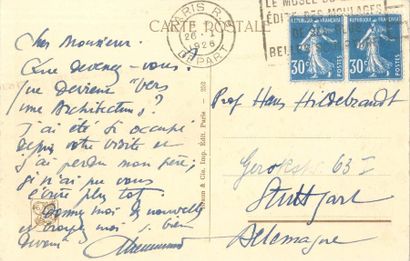 CARTE POSTALE
PARIS R.P.
26 - 1
1926
DEPART
LE MUSEE
EDITE DES MOULAGES
DE
BEL
REPUBLIQUE FRANÇAISE
30c
POSTES
REPUBLIQUE FRANÇAISE
30c
POSTES
Cher Monsieur.
Que devenez-vous?
que devient "vers
une Architecture"?
J'ai été si occupé
depuis votre visite et
j'ai perdu mon père,
si j'ai pu vous
écrire plus tôt.
Donnez moi de nouvelles
et croyez moi, bien
devoué
Braun & Cie, Imp. Édit. Paris
Prof Hans Hildebrandt
63
Stuttgart
Allemagne